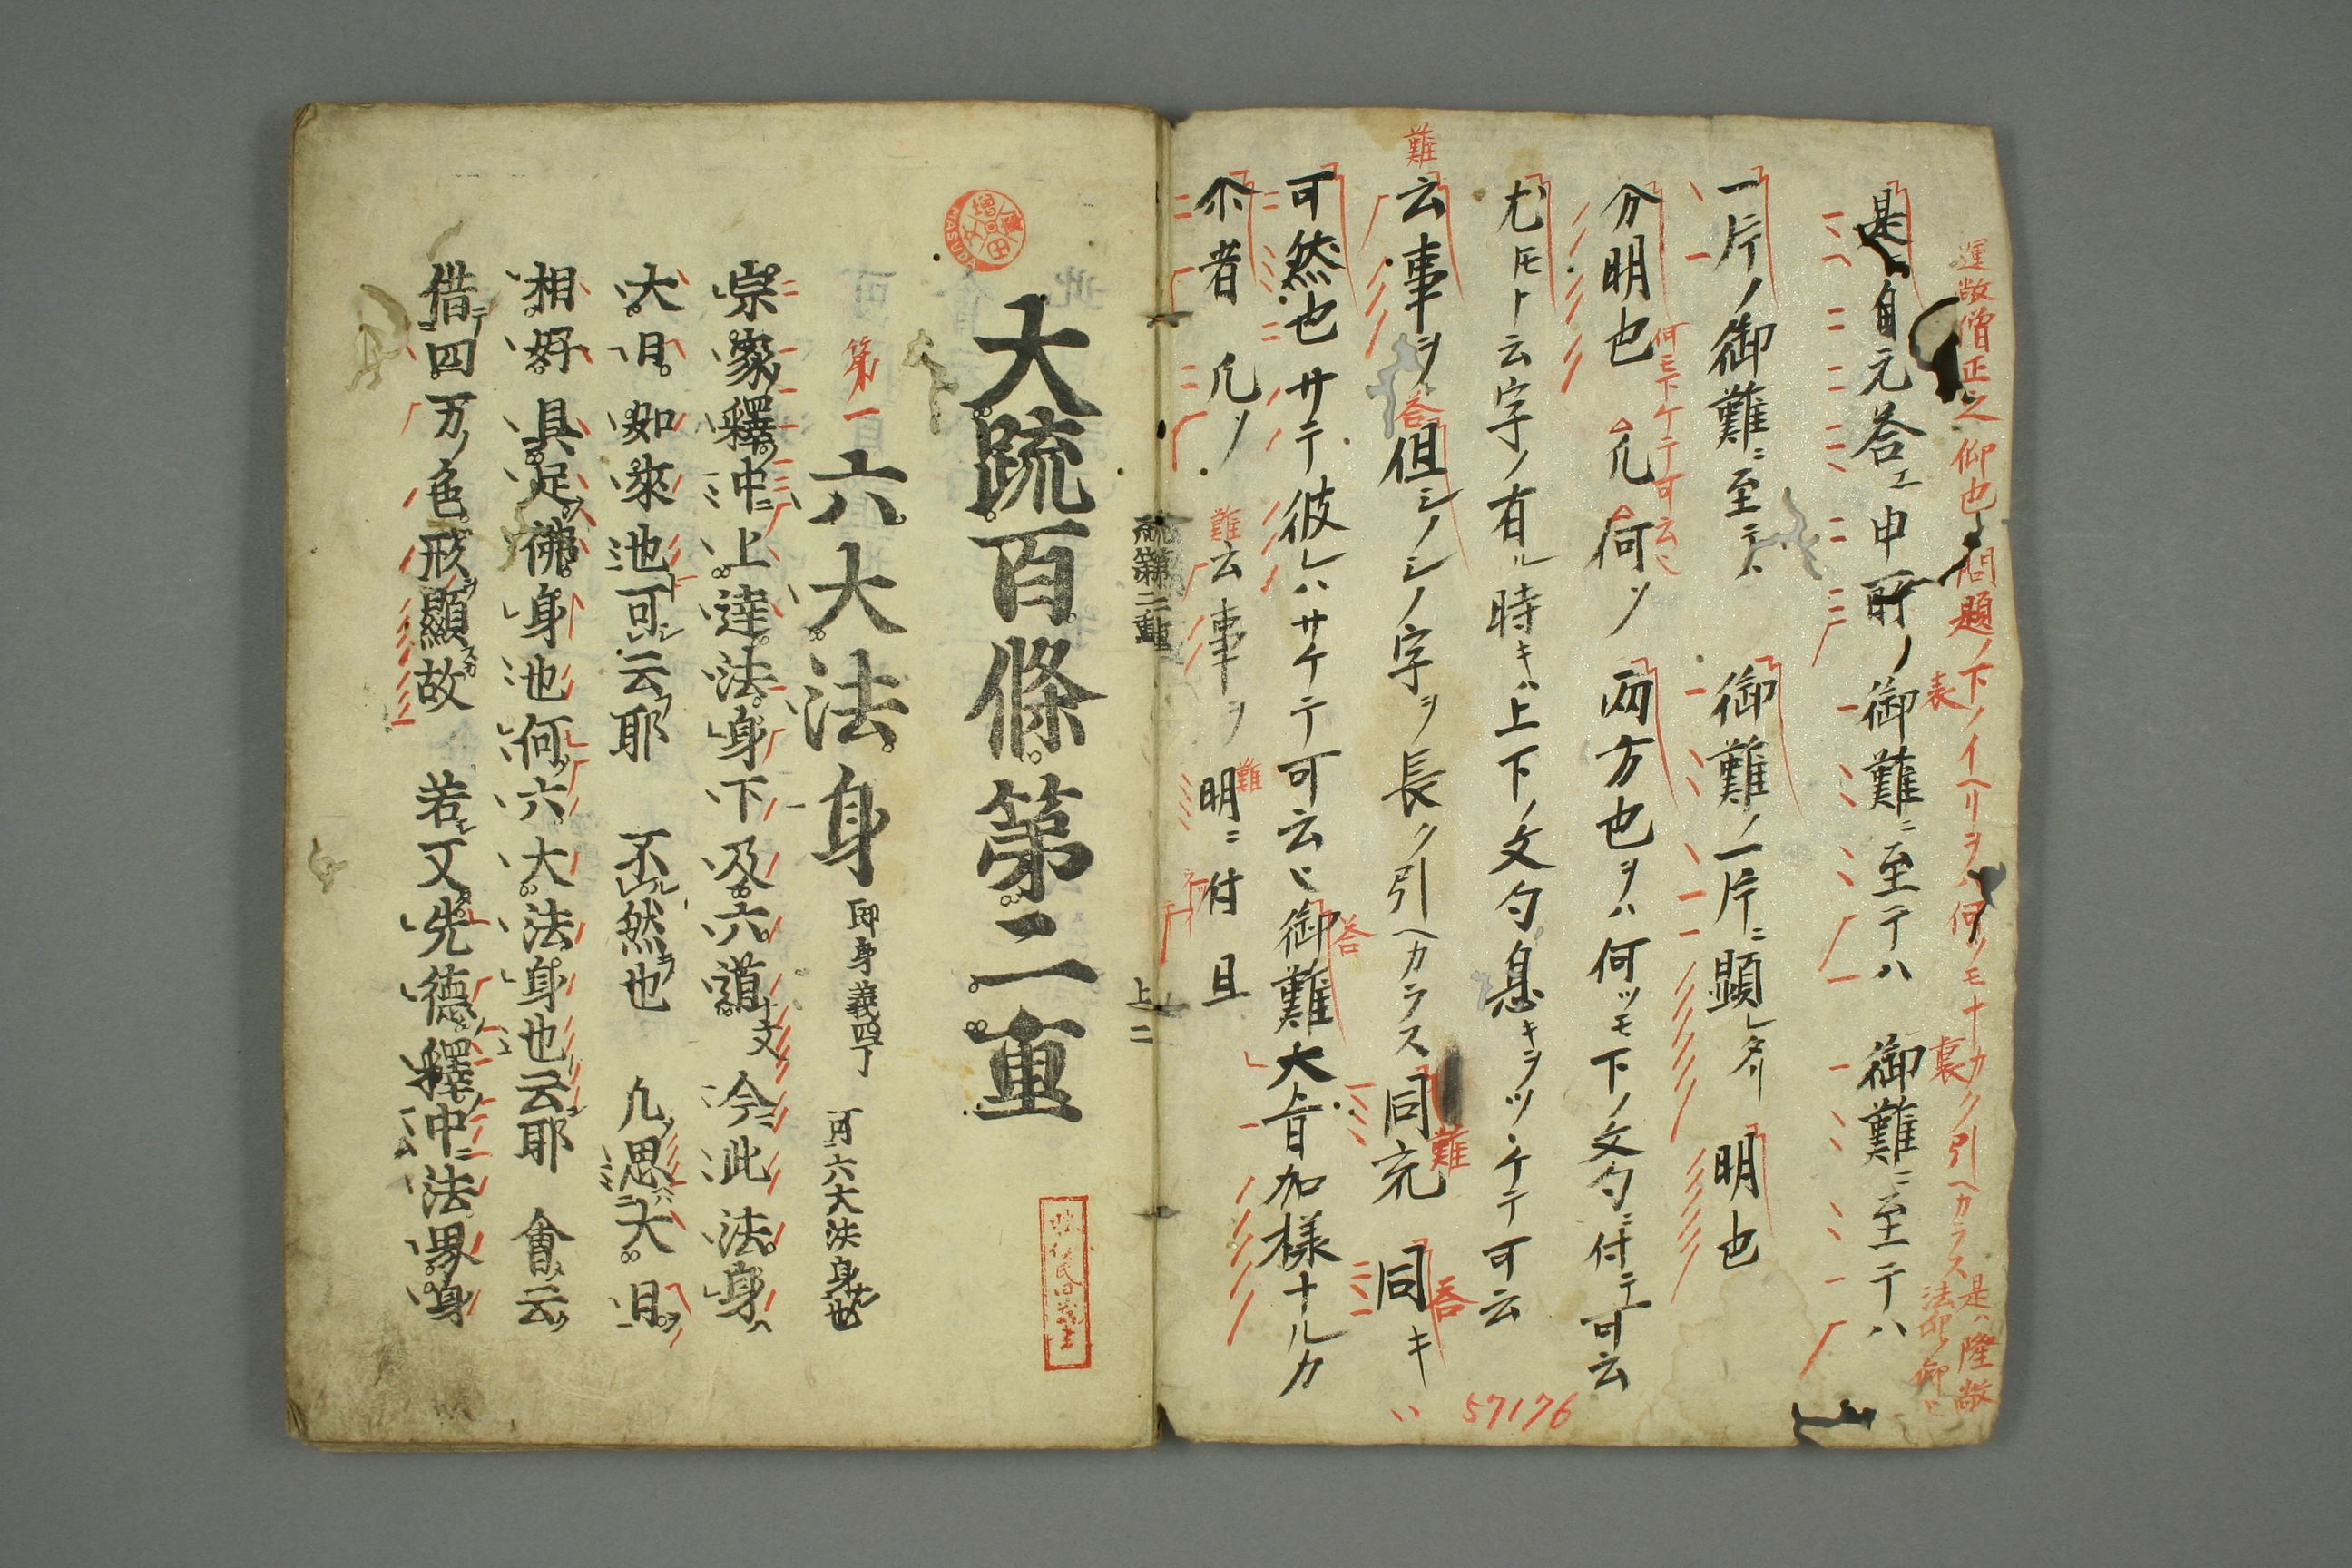 運敞僧正之仰也問題ノ下ノイヘリヲハ何ツモナカク引ヘカラス是ハ隆敞
法印ノ御
表
裏
是ニ自元答エ申所ノ御難ニ至テハ 御難ニ至テハ
一片ノ御難ニ至テハ 御難ノ一片ニ顕レタリ 明也
分明也 凡何ソ 両方也ヲハ何ツモ下ノ文勺ニ付テ可云
何モ下ケテ可云
尤モト云字ノ有ル時キハ上下ノ文勺息キヲツヽケテ可云
難云事ヲ 答 但シノシノ字ヲ長ク引ヘカラス 同 難 同キ 答
可然也サテ彼レハサケテ可云 答 御難大旨加様ナルカ
尒者 凡ノ 難 云事ヲ 難 明ニ付 且
57176
疏第二重
上二
大疏百條第二重
第一 六大法身 即身義四丁 可六大法身也
宗家釋中上達法身下及六道文 今此法身ハ
大日如來也可云耶 不然也 凡思大日
相好具足佛身也何六大法身也云耶 會云
借四万ノ色形顯故 若又先德釋中法界身
増田文庫
MASUDA